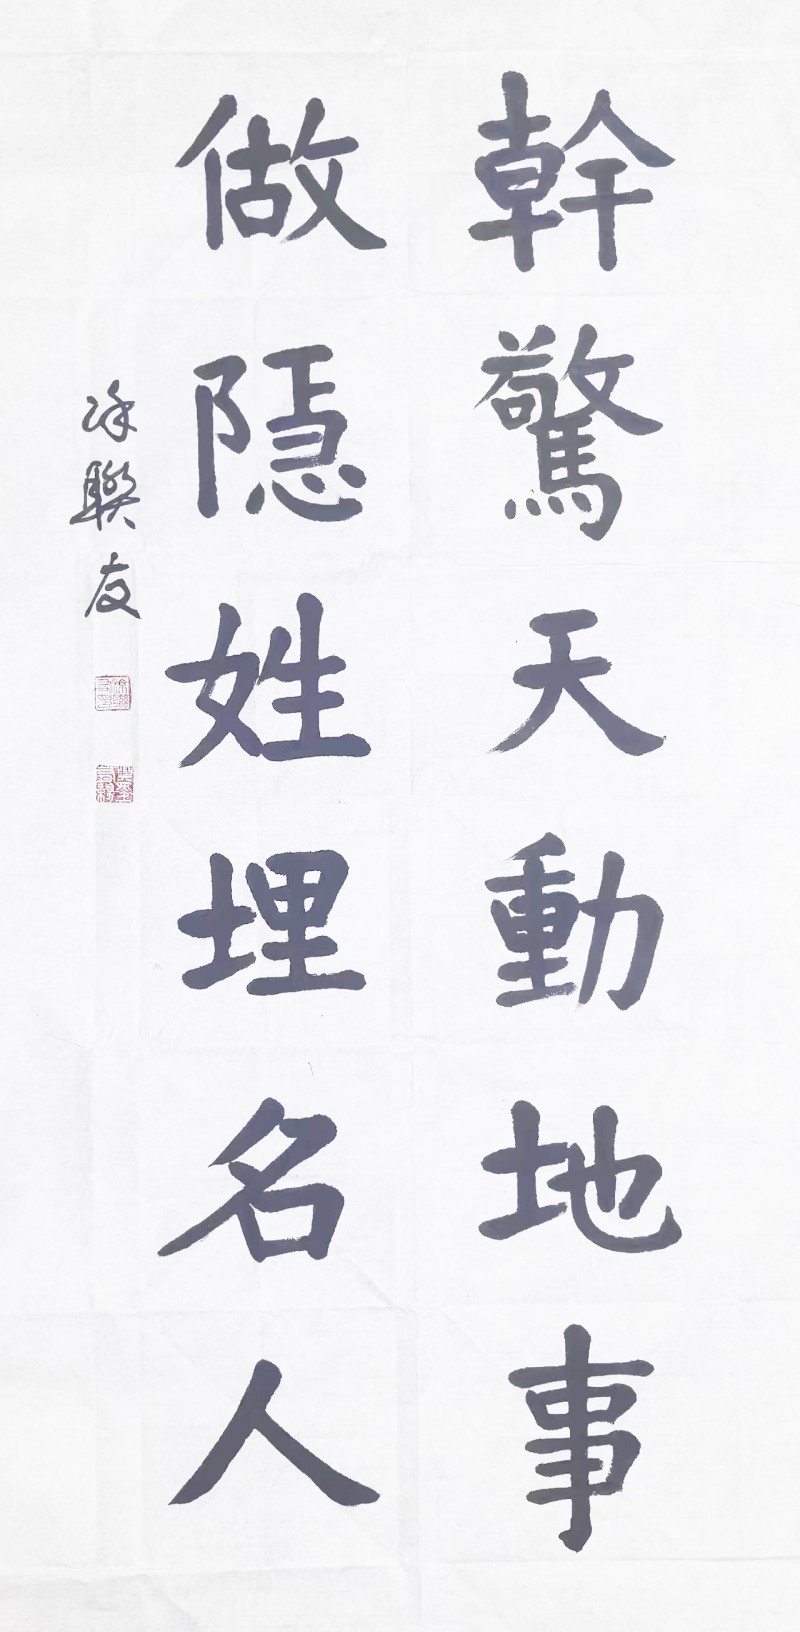 幹驚天動地事
做隱姓埋名人
涂聯友